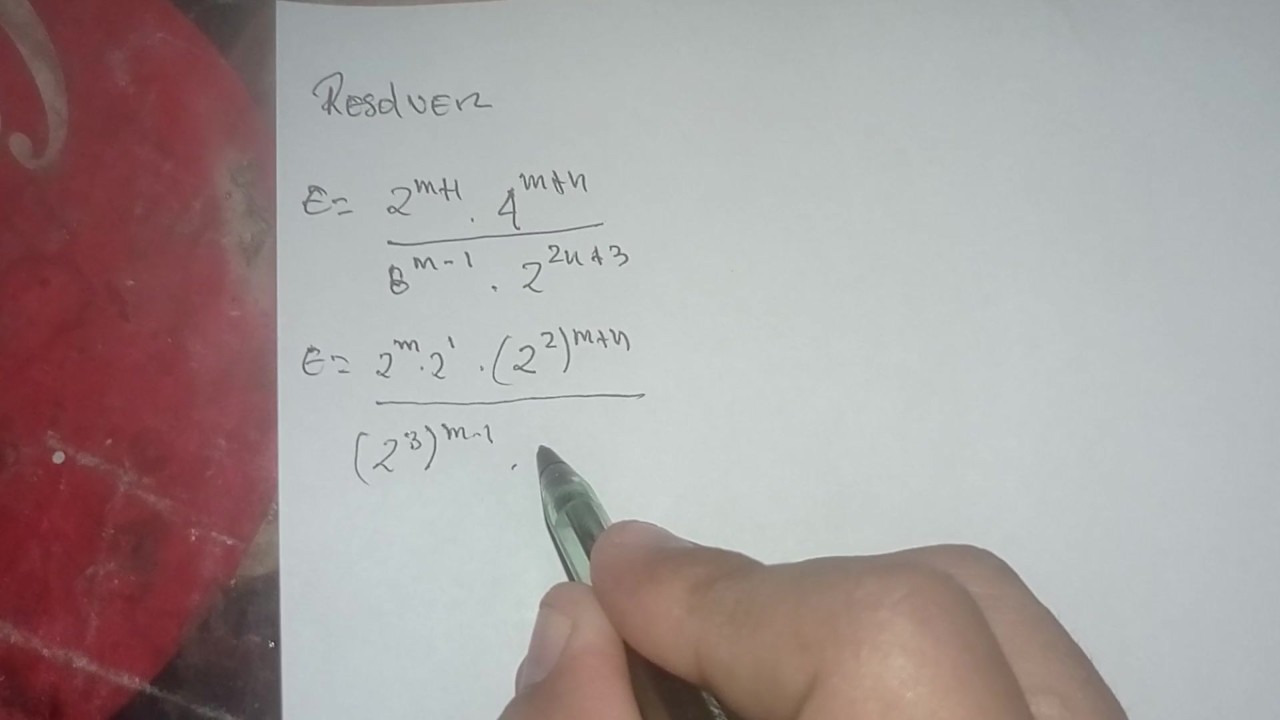 Resolver
E= 2^{m+1} . 4^{m+n}
8^{m-1} . 2^{2n+3}
E= 2^m . 2^1 . (2^2)^{m+n}
(2^3)^{m-1} .